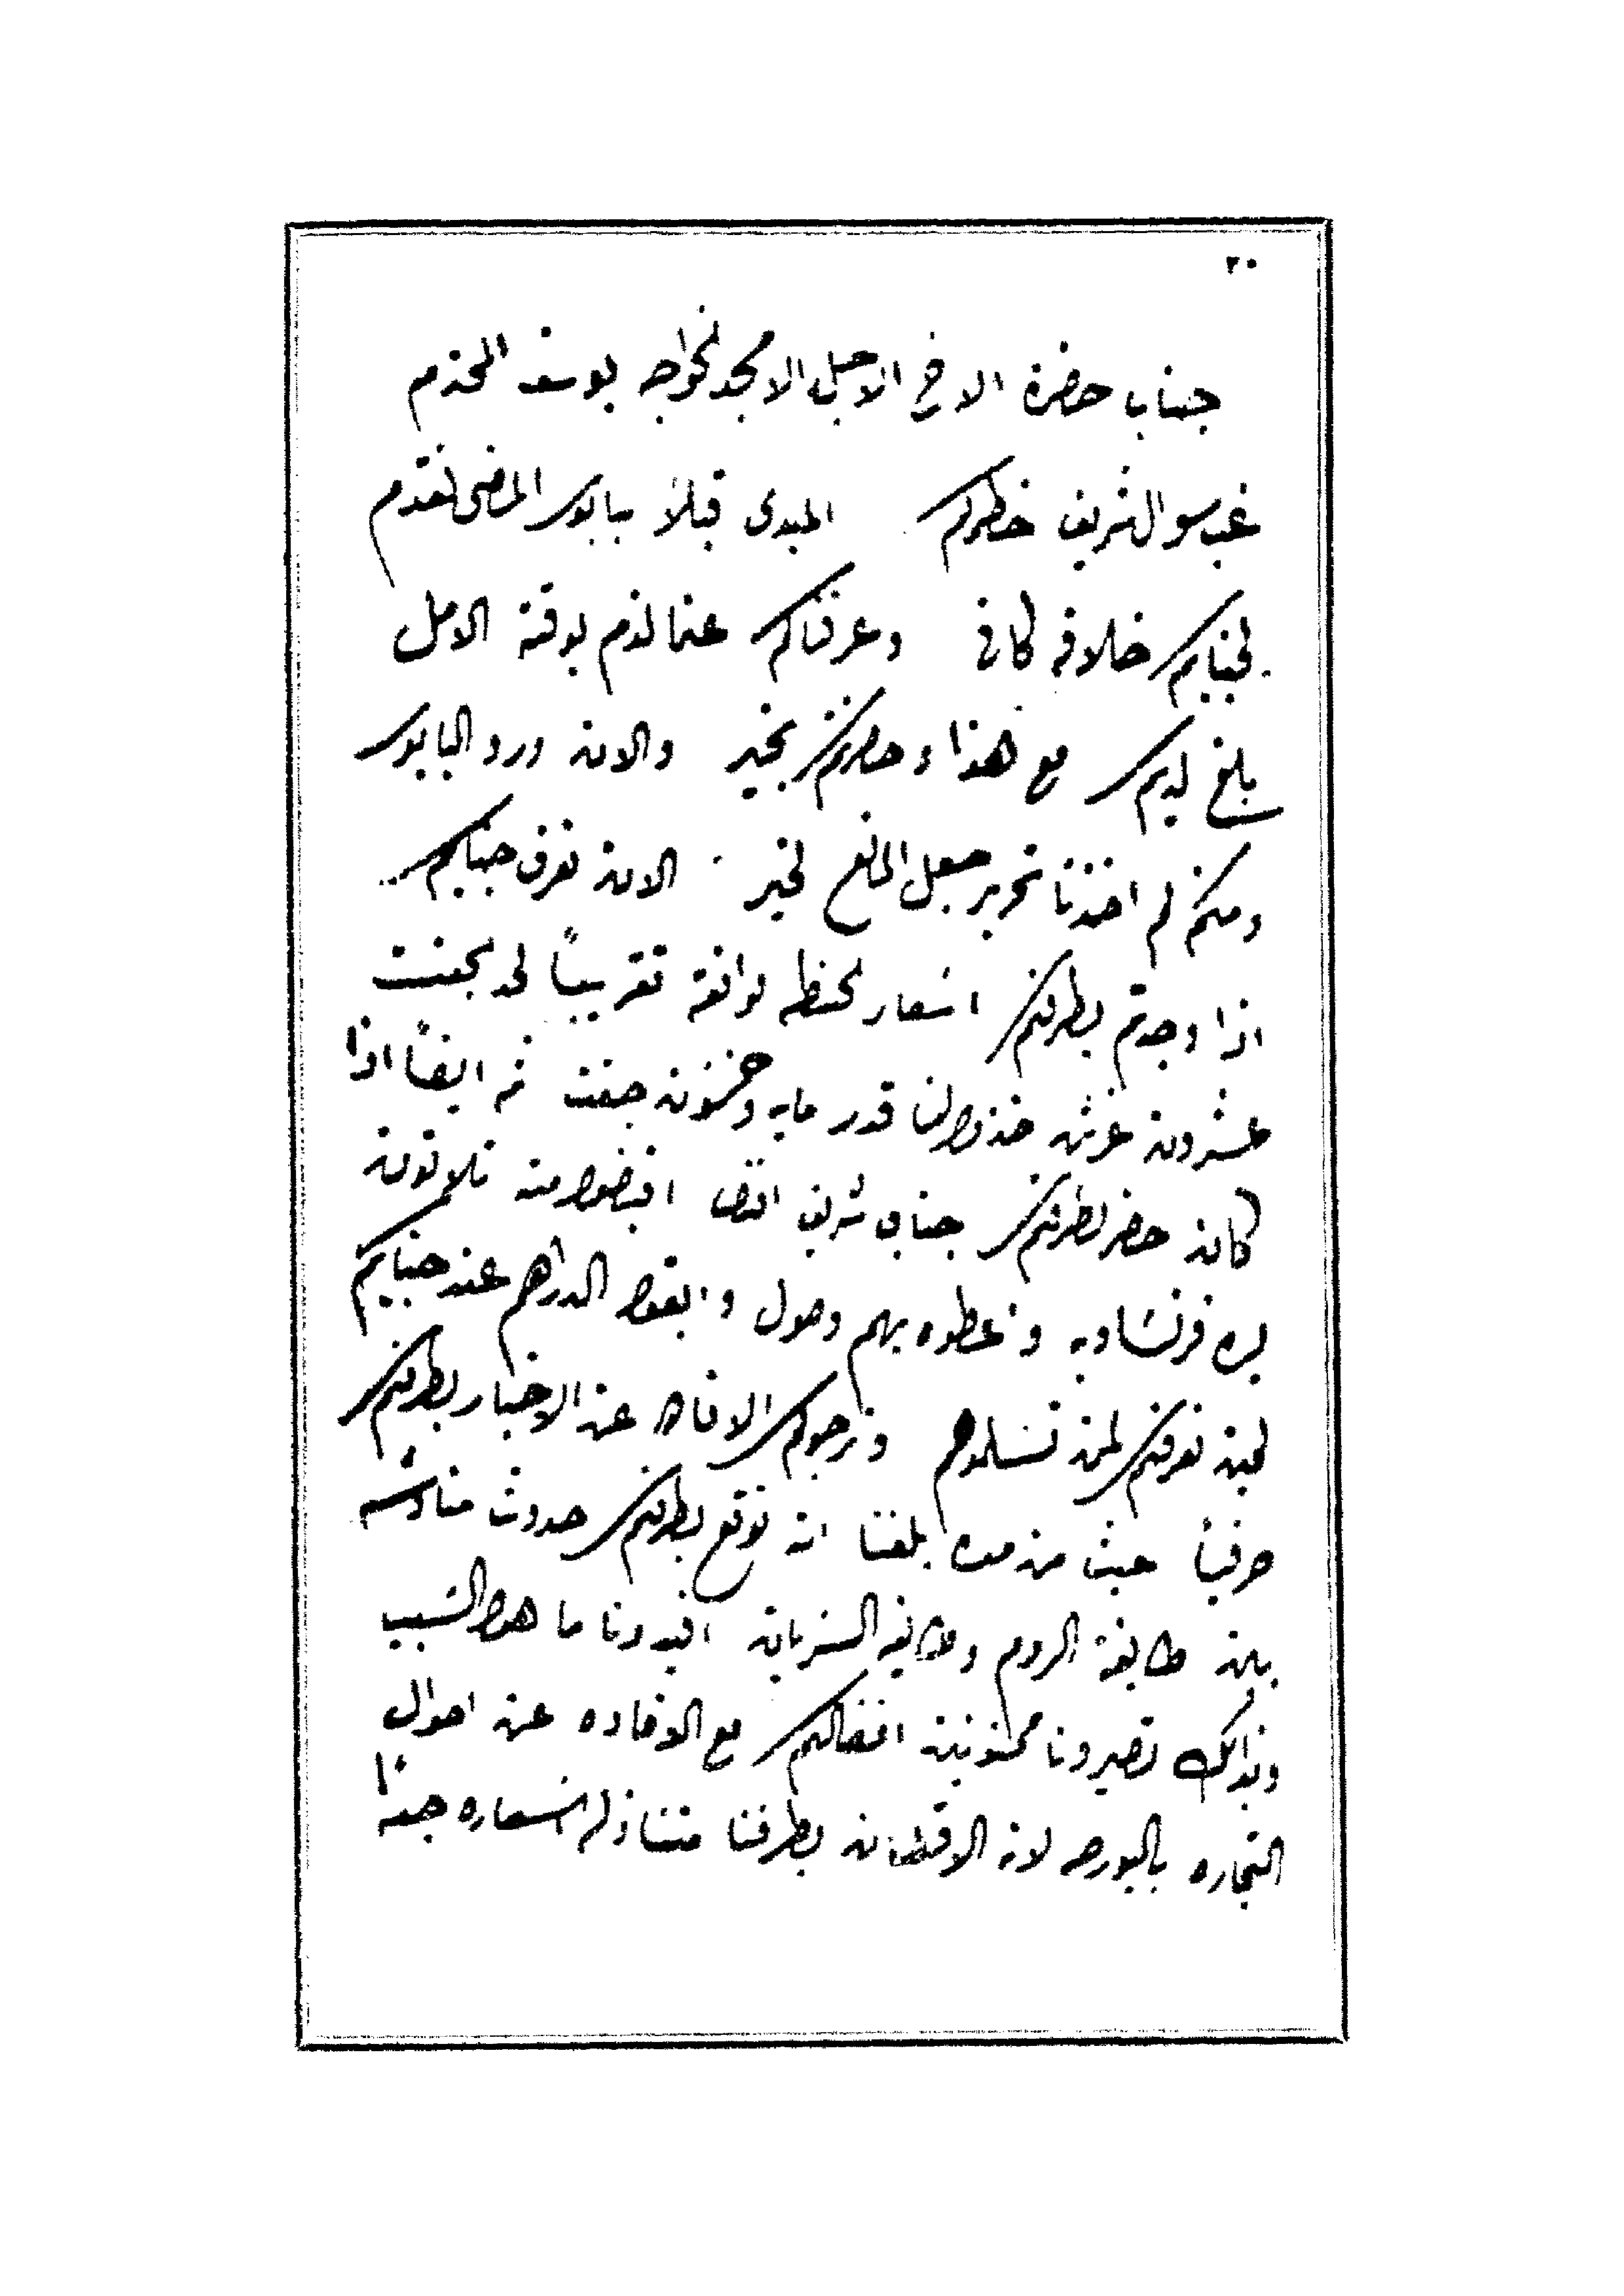 ٢٠
جناب حضرة الاخ الاجل الامجد الخواجه يوسف المحترم
غب سوال شريف خاطركم المبدى قبلاً ببابور الماضى تقدم
لجنابكم خلافه كافى وعرفناكم عنما لزم بوقته الامل
بلغ لديكم مع هذا وحضرتكم بخير والان ورد البابور
ومنكم لم اخذنا تحرير جعل المانع لخير الان نعرف جنابكم
اذا وجدتم بطرفكم اسعار الحنطه توافقه تقريباً لحد بجفت
عشرون غرش خذوا لنا قدر مايه وخمسون جفت ثم ايضاً اذا
كان حضر لطرفكم جناب شريف اقبضوا منه ثلاثون
ليره فرنساويه واعطوه بهم وصول وابقوا الدراهم عند جنابكم
لحين نعرفكم لمن تسلموهم ونرجوكم الافاده عن الاخبار بطرفكم
حرفياً حيث من مده بلغنا انه توقع بطرفكم حدوث مناوشه
بين طايفة الروم وطايفه السريان افيدونا ما هو السبب
وبذالك تصيرونا ممنونين افضالكم مع الافاده عن احوال
التجاره بالبورصه لان الاقطان بطرفنا متنازله اسعاره جداً